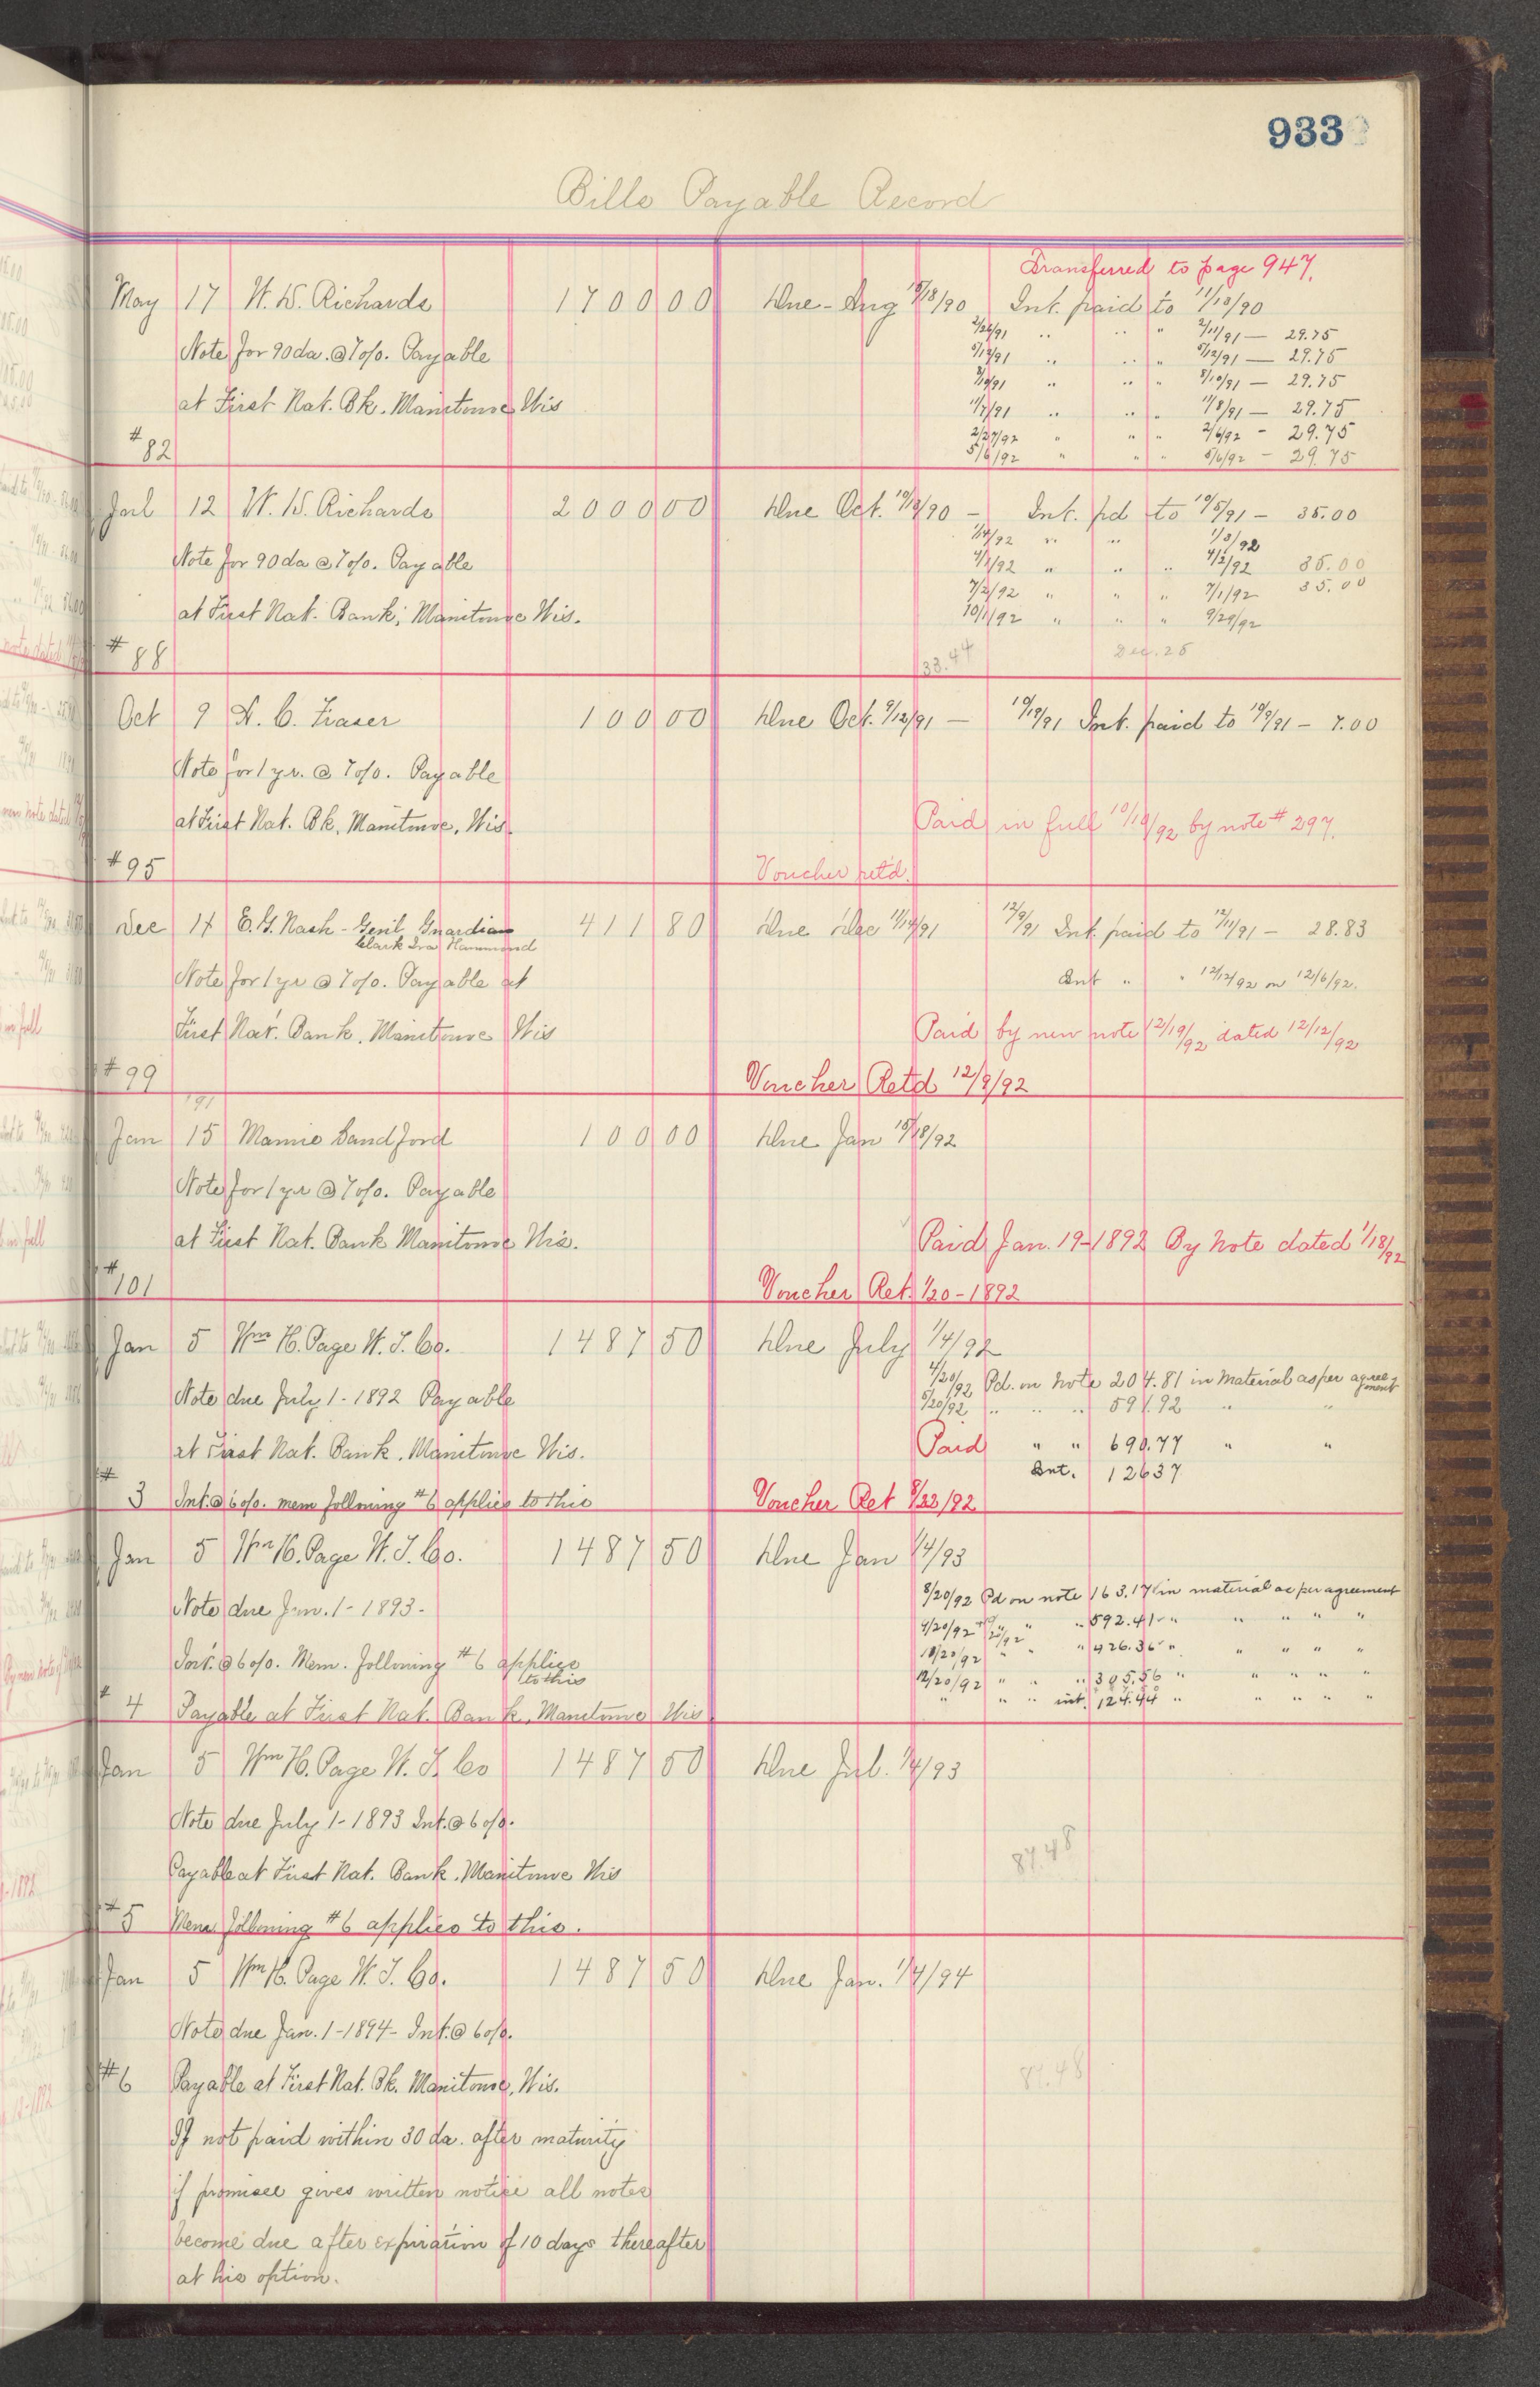 933
Bills Payable Record
Transferred to page 947.
May 17 W. D. Richards 1700 00 Due - Aug 15/18/90 Int. paid to 11/13/90
2/26/91 " " " 2/11/91 — 29.75
Note for 90 da. @ 7 o/o. Payable 5/12/91 " " " 5/12/91 — 29.75
8/10/91 " " " 8/10/91 — 29.75
at First Nat. Bk. Manitowoc Wis 11/7/91 " " " 11/8/91 — 29.75
2/27/92 " " " 2/6/92 - 29.75
#82 5/6/92 " " " 5/6/92 - 29.75
Jul 12 W. D. Richards 2000 00 Due Oct. 10/13/90 - Int. pd to 10/5/91 - 35.00
1/4/92 " " 1/3/92
Note for 90 da @ 7 o/o. Payable 4/2/92 " " " 4/2/92 35.00
7/2/92 " " " 7/1/92 35.00
at First Nat. Bank, Manitowoc Wis. 10/1/92 " " " 9/29/92
#88 33.44 Dec. 25
Oct 9 D. C. Fraser 100 00 Due Oct. 9/12/91 — 10/19/91 Int. paid to 10/9/91 - 7.00
Note for 1 yr. @ 7 o/o. Payable
at First Nat. Bk. Manitowoc, Wis. Paid in full 10/10/92 by note # 297.
#95 Voucher retd.
Dec 14 E. G. Nash - Genl Guardian 411 80 Due Dec 11/14/91 12/9/91 Int. paid to 12/11/91 - 28.83
Clark Ira Hammond
Note for 1 yr @ 7 o/o. Payable at Int " " 12/12/92 on 12/6/92.
First Nat. Bank, Manitowoc Wis Paid by new note 12/19/92 dated 12/12/92
#99 Voucher Retd 12/9/92
'91
Jan 15 Mamie Sandford 100 00 Due Jan 15/18/92
Note for 1 yr @ 7 o/o. Payable
at First Nat. Bank Manitowoc Wis. Paid Jan. 19-1892 By Note dated 1/18/92
#101 Voucher Ret. 1/20-1892
Jan 5 Wm H. Page W. T. Co. 1487 50 Due July 1/4/92
4/20/92 Pd. on Note 204.81 in Material as per agreement
Note due July 1-1892 Payable 5/20/92 " " " 591.92 " "
at First Nat. Bank, Manitowoc Wis. Paid " " 690.77 " "
Int. 126 37
#3 Int. @ 6 o/o. mem following #6 applies to this Voucher Ret 8/22/92
Jan 5 Wm H. Page W. T. Co. 1487 50 Due Jan 1/4/93
8/20/92 Pd on note 163.17 in material as per agreement
Note due Jan. 1-1893- 9/20/92 " " 592.41 " " " " "
10/20/92 " " 426.36 " " " " "
Int. @ 6 o/o. Mem. following #6 applies to this
12/20/92 " " " 305.56 " " " " "
#4 Payable at First Nat. Bank, Manitowoc Wis. " " " int. 124.44 " " " " "
Jan 5 Wm H. Page W. T. Co 1487 50 Due Jul. 1/4/93
Note due July 1-1893 Int. @ 6 o/o.
87.48
Payable at First Nat. Bank, Manitowoc Wis
#5 Mem following #6 applies to this.
Jan 5 Wm H. Page W. T. Co. 1487 50 Due Jan. 1/4/94
Note due Jan. 1-1894- Int. @ 6 o/o.
#6 Payable at First Nat. Bk. Manitowoc, Wis. 87.48
If not paid within 30 da. after maturity
if promisee gives written notice all notes
become due after expiration of 10 days thereafter
at his option.